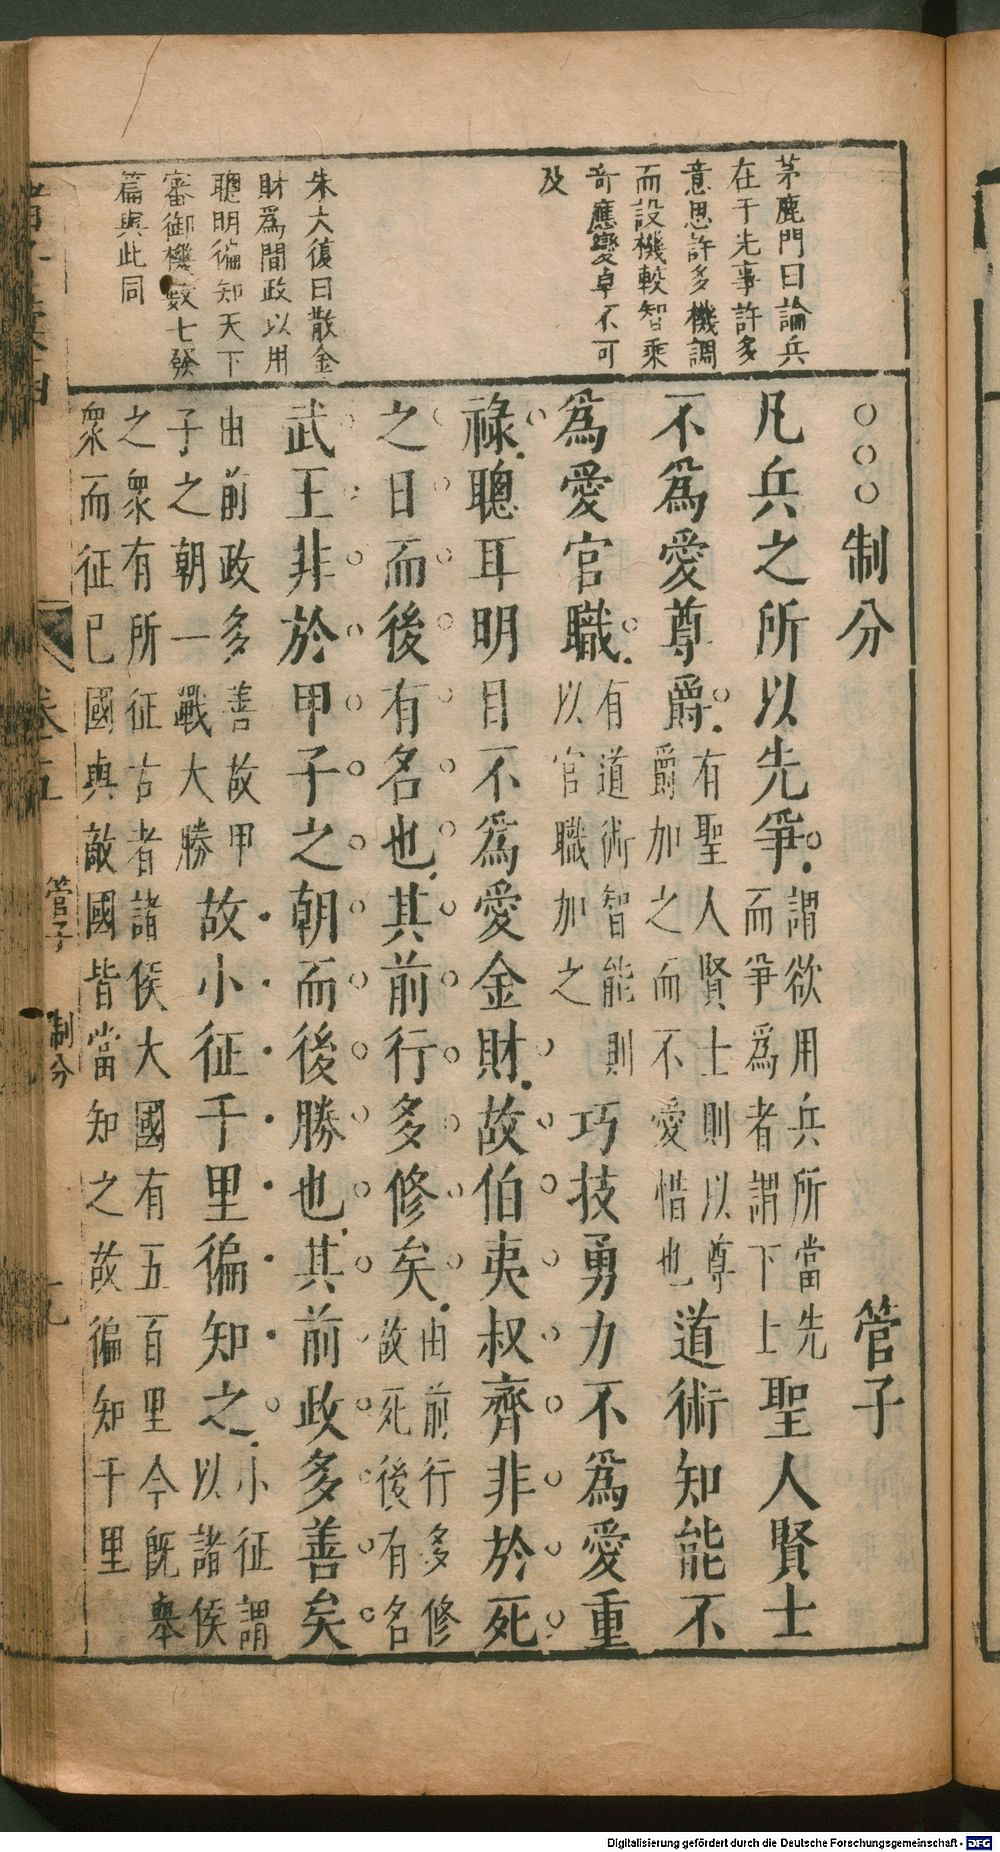 茅鹿門曰論兵
在于先事許多
意思許多機調
而設機較智乘
奇應變卓不可
及
朱大復曰散金
財爲間政以用
聰明徧知天下
審御機數七發
篇與此同
○○○制分　管子
凡兵之所以先爭。謂欲用兵所當先而爭爲者謂下上聖人賢士
不爲愛尊爵。有聖人賢士則以尊爵加之而不愛惜也道術知能不
爲愛官職。有道術智能則以官職加之巧技勇力不爲愛重
祿。聰耳明目不爲愛金財。故伯夷叔齊非於死
之日而後有名也其前行多修矣。由前行多修故死後有名
武王非於甲子之朝而後勝也其前政多善矣
由前政多善故甲子之朝一戰大勝故小征千里徧知之。小征謂以諸侯
之衆有所征古者諸侯大國有五百里今旣舉
衆而征巳國與敵國皆當知之故徧知千里
卷五　管子　制分　十九
Digitalisierung gefördert durch die Deutsche Forschungsgemeinschaft - DFG